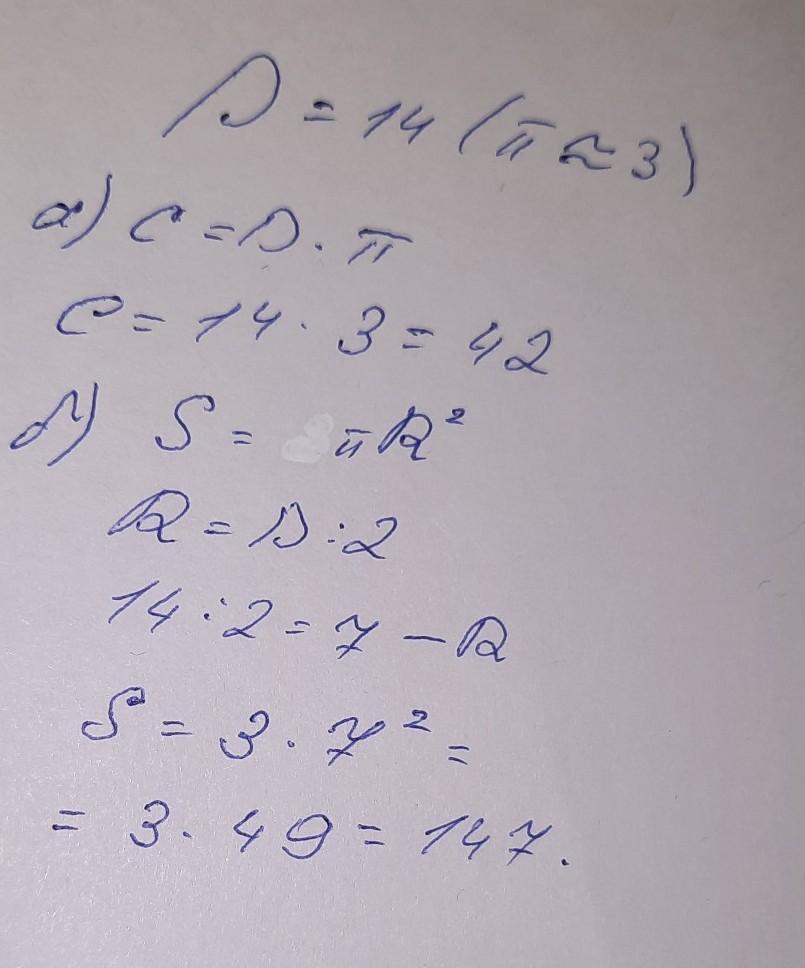 D = 14 (π ≈ 3)
а) C = D · π
C = 14 · 3 = 42
б) S = πR²
R = D : 2
14 : 2 = 7 – R
S = 3 · 7² =
= 3 · 49 = 147.